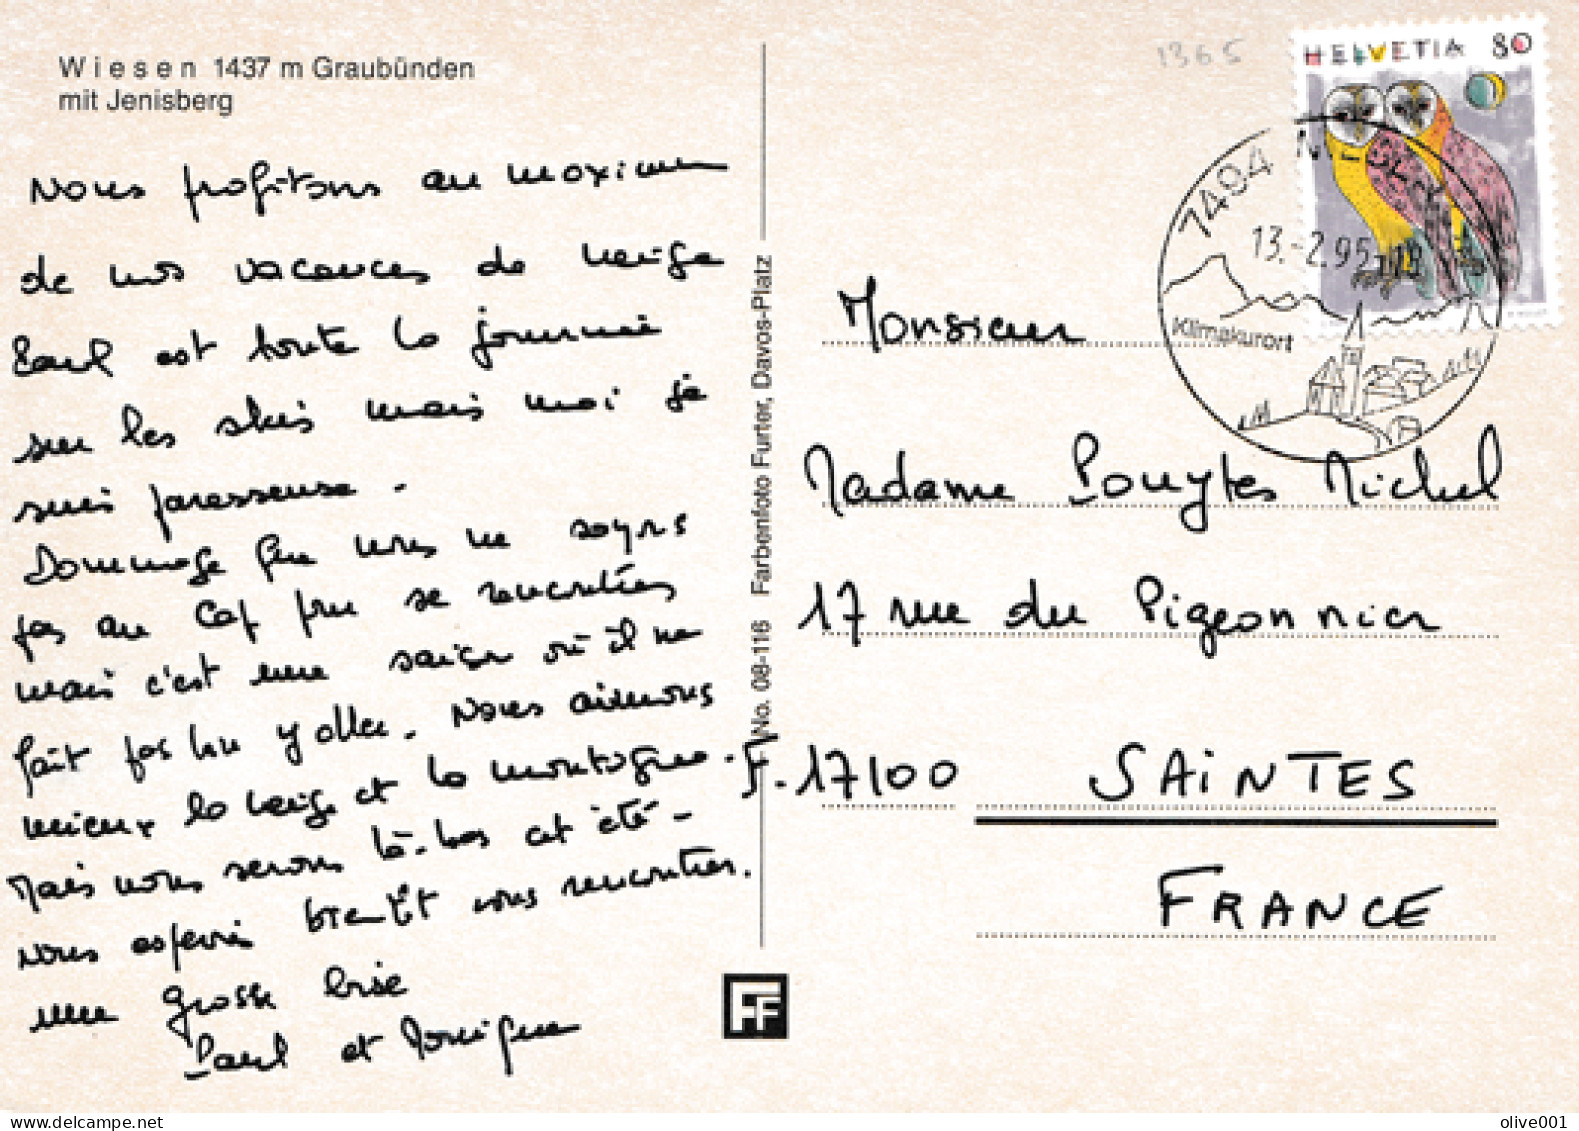 Wiesen 1437 m Graubünden
mit Jenisberg
Nous profitons au maximum
de nos vacances de neige
Paul est toute la journée
sur les skis mais moi je
suis paresseuse.
Dommage que nous ne soyons
pas au Cap pour se rencontrer
mais c'est une saison où il ne
fait pas bon y aller. Nous aimons
mieux la neige et la montagne.
Mais nous serons là-bas cet été-
Nous espérons bientôt vous rencontrer.
une grosse bise
Paul et Dominique
No. 08-116 Farbenfoto Furter, Davos-Platz
FF
1365
HELVETIA 80
7494
13.-2.95.18
Klimakurort
Monsieur
Madame Pouytes Michel
17 rue du Pigeonnier
F.17100 SAiNTES
FRANCE
olive001